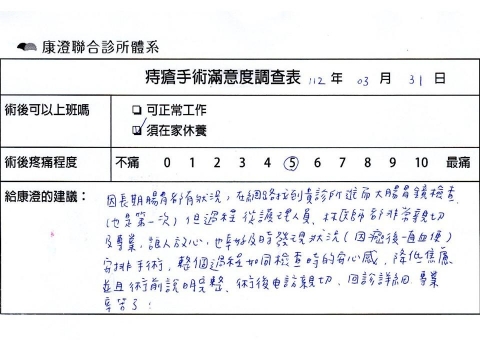 康澄聯合診所體系
痔瘡手術滿意度調查表 112 年 03 月 31 日
術後可以上班嗎 □ 可正常工作
☑ 須在家休養
術後疼痛程度 不痛 0 1 2 3 4 ⑤ 6 7 8 9 10 最痛
給康澄的建議: 因長期腸胃都有狀況,在網路找到貴診所進而大腸胃鏡檢查
(也是第一次)但過程從護理人員、林醫師都非常親切
及專業,讓人放心,也幸好及時發現狀況(因痔瘡一直血便)
安排手術,整個過程如同檢查時的安心感、降低焦慮
並且術前說明完整、術後電訪親切、回診詳細專業
辛苦了!